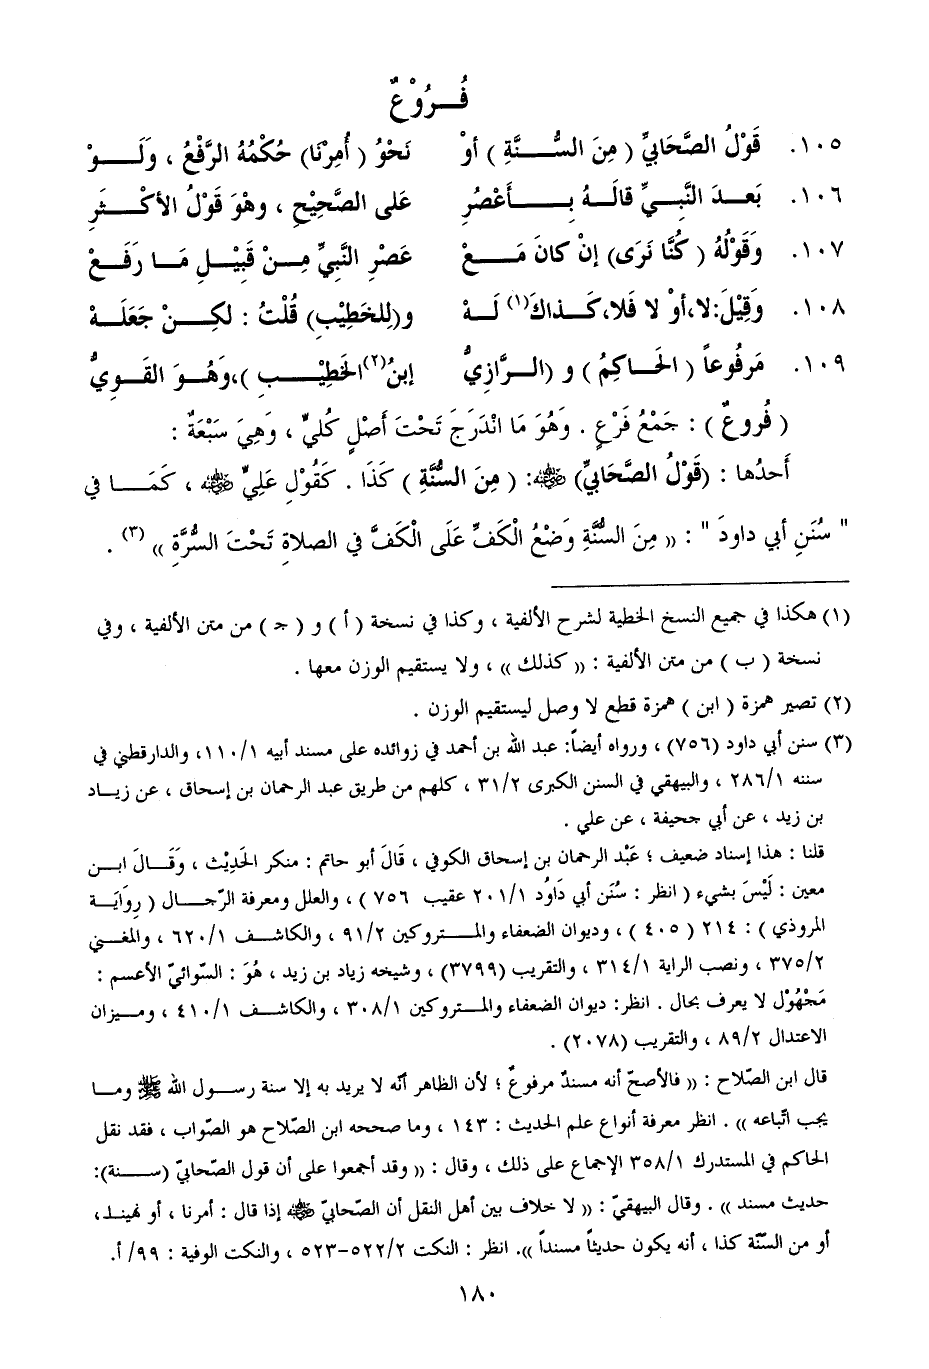 فُـــرُوْعٌ
١٠٥. قَوْلُ الصَّحَابيِّ ( مِنَ السُّـــنَّةِ ) أوْ نَحْوُ ( أُمِرْنَا) حُكْمُهُ الرَّفْعُ ، وَلَــوْ
١٠٦. بَعــدَ النَّبِــيِّ قالَــهُ بِـــأَعْصُرِ عَلى الصَّحِيْحِ ، وهْوَ قَوْلُ الأكْثَــرِ
١٠٧. وَقَوْلُهُ ( كُنَّا نَرَى) إنْ كانَ مَــعْ عَصْرِ النَّبِيِّ مِــنْ قَبِيْــلِ مَــا رَفَعْ
١٠٨. وَقِيْلَ:لا،أوْ لا فَلا،كَــذاكَ(١) لَــهْ و(لِلخَطِيْبِ) قُلْتُ : لكِــنْ جَعَلَــهْ
١٠٩. مَرفُوعاً ( الحَـاكِمُ ) و (الــرَّازِيُّ إبنُ(٢)الخَطِيْـــبِ )،وَهُــوَ القَوِيُّ
( فُروعٌ ) : جَمْعُ فَرْعٍ . وَهُوَ مَا انْدَرَجَ تَحْتَ أصْلٍ كُلِّيٍّ ، وَهِيَ سَبْعَةٌ :
أَحدُها : (قَوْلُ الصَّحَابيِّ) ﷺ: ( مِنَ السُّنَّةِ ) كَذَا . كَقُوْلِ عَلِيٍّ ﷺ ، كَمَـــا في
" سُنَنِ أبي داودَ " : (( مِنَ السُّنَّةِ وَضْعُ الْكَفِّ عَلَى الْكَفِّ في الصلاةِ تَحْتَ السُّرَّةِ )) (٣) .
(١) هكذا في جميع النسخ الخطية لشرح الألفية ، وكذا في نسخة ( أ ) و ( جـ ) من متن الألفية ، وفي
نسخة ( ب ) من متن الألفية : (( كذلك )) ، ولا يستقيم الوزن معها .
(٢) تصير همزة ( ابن ) همزة قطع لا وصل ليستقيم الوزن .
(٣) سنن أبي داود (٧٥٦) ، ورواه أيضاً: عبد الله بن أحمد في زوائده على مسند أبيه ١١٠/١، والدارقطني في
سننه ٢٨٦/١ ، والبيهقي في السنن الكبرى ٣١/٢ ، كلهم من طريق عبد الرحمان بن إسحاق ، عن زيــاد
بن زيد ، عن أبي جحيفة ، عن علي .
قلنا : هذا إسناد ضعيف ؛ عَبْد الرحمان بن إسحاق الكوفي ، قَالَ أبو حاتم : منكر الحَدِيْث ، وَقَــالَ ابــن
معين : لَيْسَ بشيء ( انظر : سُنَن أبي دَاوُد ٢٠١/١ عقيب ٧٥٦ ) ، والعلل ومعرفة الرِّجــال ( رِوَايَــة
المروذي ) : ٢١٤ ( ٤٠٥ ) ، وديوان الضعفاء والمـــتروكين ٩١/٢ ، والكاشــف ٦٢٠/١ ، والمغــني
٣٧٥/٢ ، ونصب الراية ٣١٤/١ ، والتقريب (٣٧٩٩) ، وشيخه زياد بن زيد ، هُوَ : السّوائيّ الأعسم :
مَجْهُوْل لا يعرف بحال . انظر: ديوان الضعفاء والمـــتروكين ٣٠٨/١ ، والكاشـــف ٤١٠/١ ، ومــيزان
الاعتدال ٨٩/٢ ، والتقريب (٢٠٧٨) .
قال ابن الصّلاح : (( فالأصحّ أنه مسندٌ مرفوعٌ ؛ لأن الظاهر أنّه لا يريد به إلا سنة رســول الله ﷺ ومــا
يجب اتّباعه )) . انظر معرفة أنواع علم الحديث : ١٤٣ ، وما صححه ابن الصّلاح هو الصّواب ، فقد نقل
الحاكم في المستدرك ٣٥٨/١ الإجماع على ذلك ، وقال : (( وقد أجمعوا على أن قول الصّحابيّ (ســـنة):
حديث مسند )) . وقال البيهقيّ : (( لا خلاف بين أهل النقل أن الصّحابيّ ﷺ إذا قال : أمرنا ، أو نهينــا،
أو من السّنّة كذا ، أنه يكون حديثاً مسنداً )). انظر : النكت ٥٢٢/٢-٥٢٣ ، والنكت الوفية : ٩٩/ أ.
١٨٠